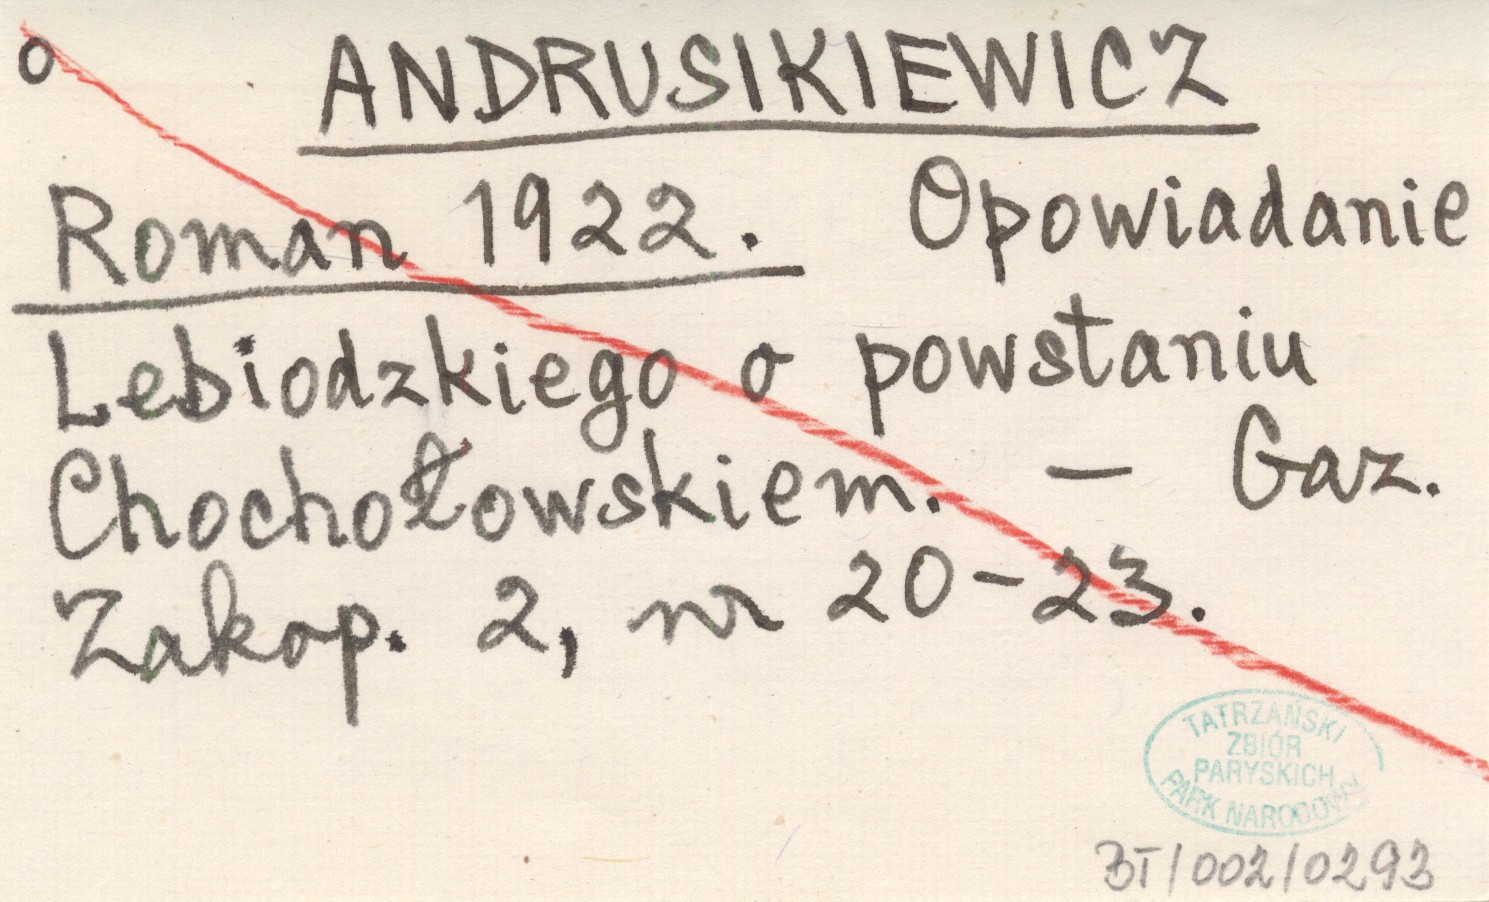 o ANDRUSIKIEWICZ
Roman 1922. Opowiadanie
Lebiodzkiego o powstaniu
Chochołowskiem. — Gaz.
Zakop. 2, nr 20-23.
TATRZAŃSKI
ZBIÓR
PARYSKICH
PARK NARODOWY
BT/002/0293